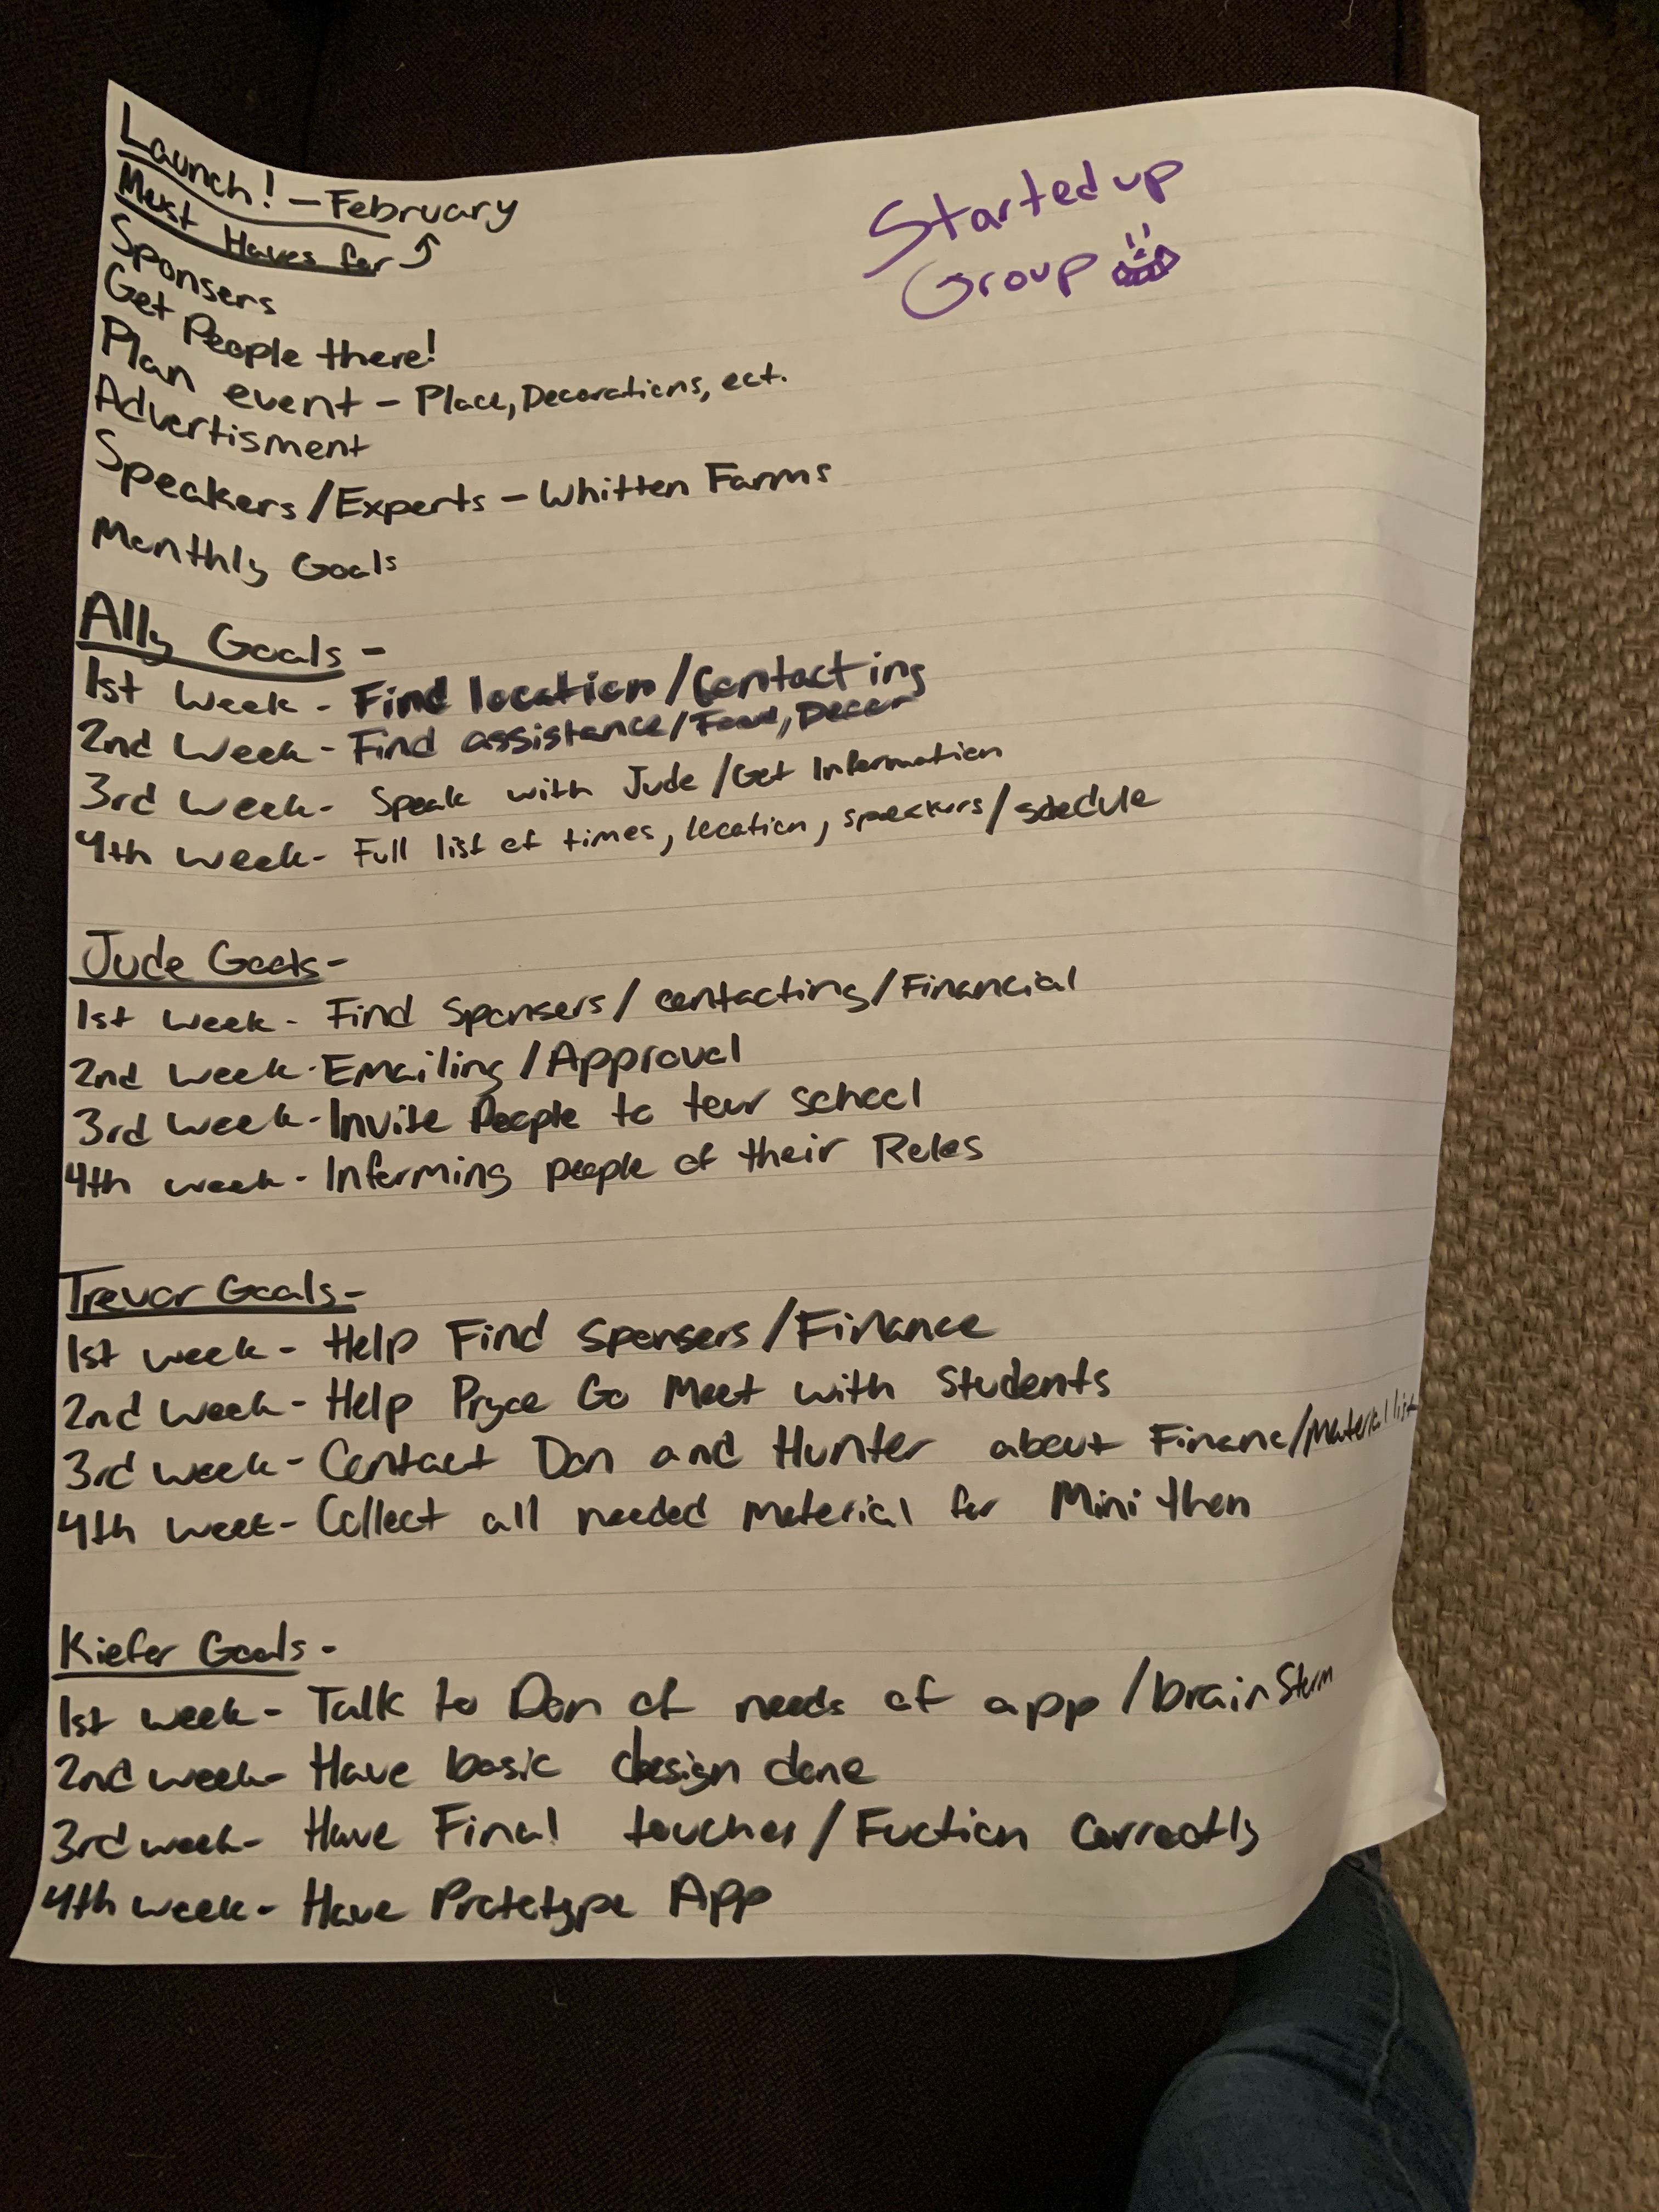 Launch! - February
Must Haves for
Startedup
Group
Sponsers
Get People there!
Plan event - Place, Decorations, ect.
Advertisment
Speakers/Experts - Whitten Farms
Monthly Goals
Ally Goals -
1st Week - Find location/Contacting
2nd Week - Find assistance/Food, Decor
3rd Week - Speak with Jude/Get Information
4th week - Full list of times, location, speakers/schedule
Jude Goals -
1st week - Find Sponsers/contacting/Financial
2nd week - Emailing/Approval
3rd week - Invite People to tour school
4th week - Informing people of their Roles
Trevor Goals -
1st week - Help Find Sponsers/Finance
2nd week - Help Pryce Go Meet with Students
3rd week - Contact Don and Hunter about Financ/Material list
4th week - Collect all needed material for Mini then
Kiefer Goals -
1st week - Talk to Don of needs of app/brainstorm
2nd week - Have basic design done
3rd week - Have Final touches/Fuction Correctly
4th week - Have Prototype App